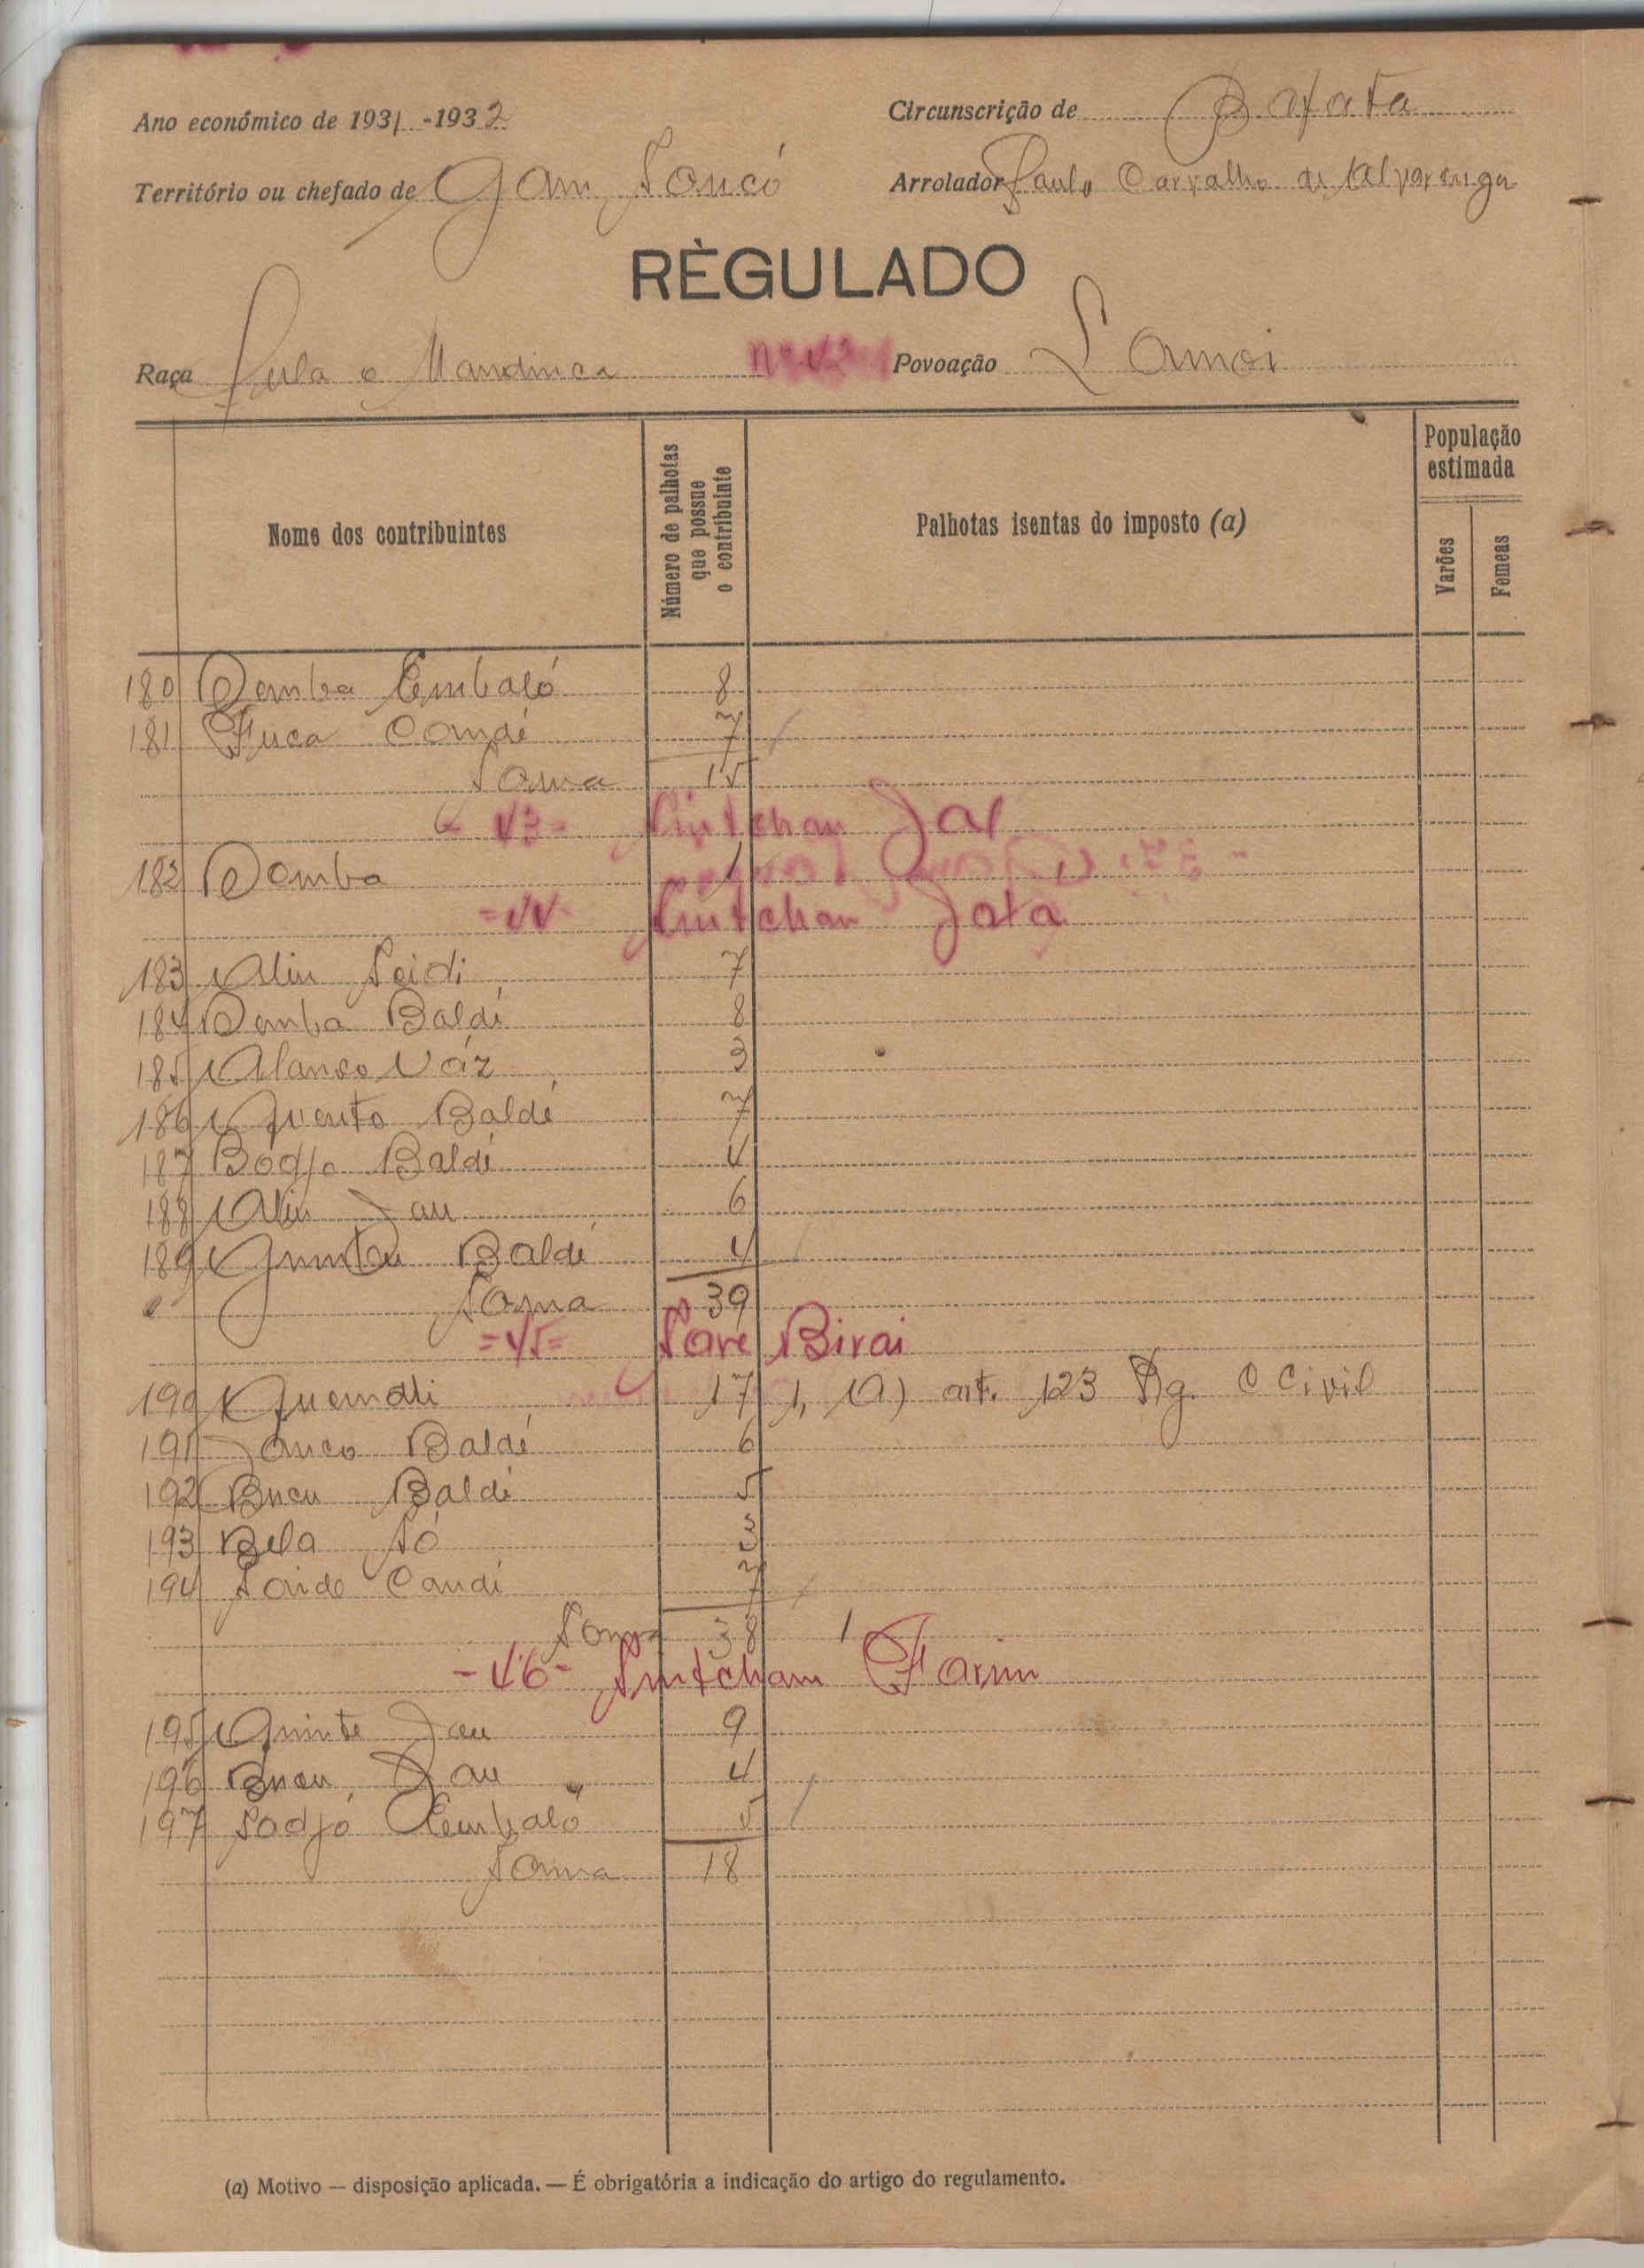 Ano económico de 1931-1932
Circunscrição de Bafata
Território ou chefado de Gam Soncó
Arrolador Paulo Carvalho de Alvarenga
RÈGULADO
Raça Fula e Mandinca Nº 42 Povoação Samoi
Nome dos contribuintes
Número de palhotas que possue o contribuinte
Palhotas isentas do imposto (a)
População estimada
Varões
Femeas
180 Demba Embaló 8
181 Comdé 7
Soma 15
43 Sintchan Jal
182 Demba 1
44 Sintchan Jata
183 Aliu Seidi 7
184 Demba Baldé 8
185 Alanso Váz 3
186 Quenta Baldé 7
187 Bodjo Baldé 4
188 Aliu Jau 6
189 Baldé 4
Soma 39
=45= Sare Birai
190 Quemdli 17 1, (a) art. 123 Rg. C Civil
191 Janco Baldé 6
192 Bucu Baldé 5
193 Bela Só 3
194 Saido Candé 7
Soma 38 1
-46- Sintcham Farim
195 Quinte Jau 9
196 Bucu Jau 4
197 Sadjó Embaló 5
Soma 18
(a) Motivo — disposição aplicada. — É obrigatória a indicação do artigo do regulamento.